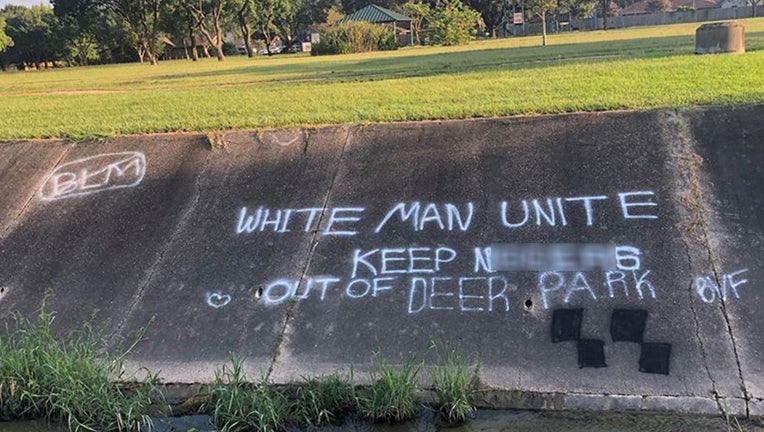 BLM
WHITE MAN UNITE
KEEP N
OUT OF DEER PARK